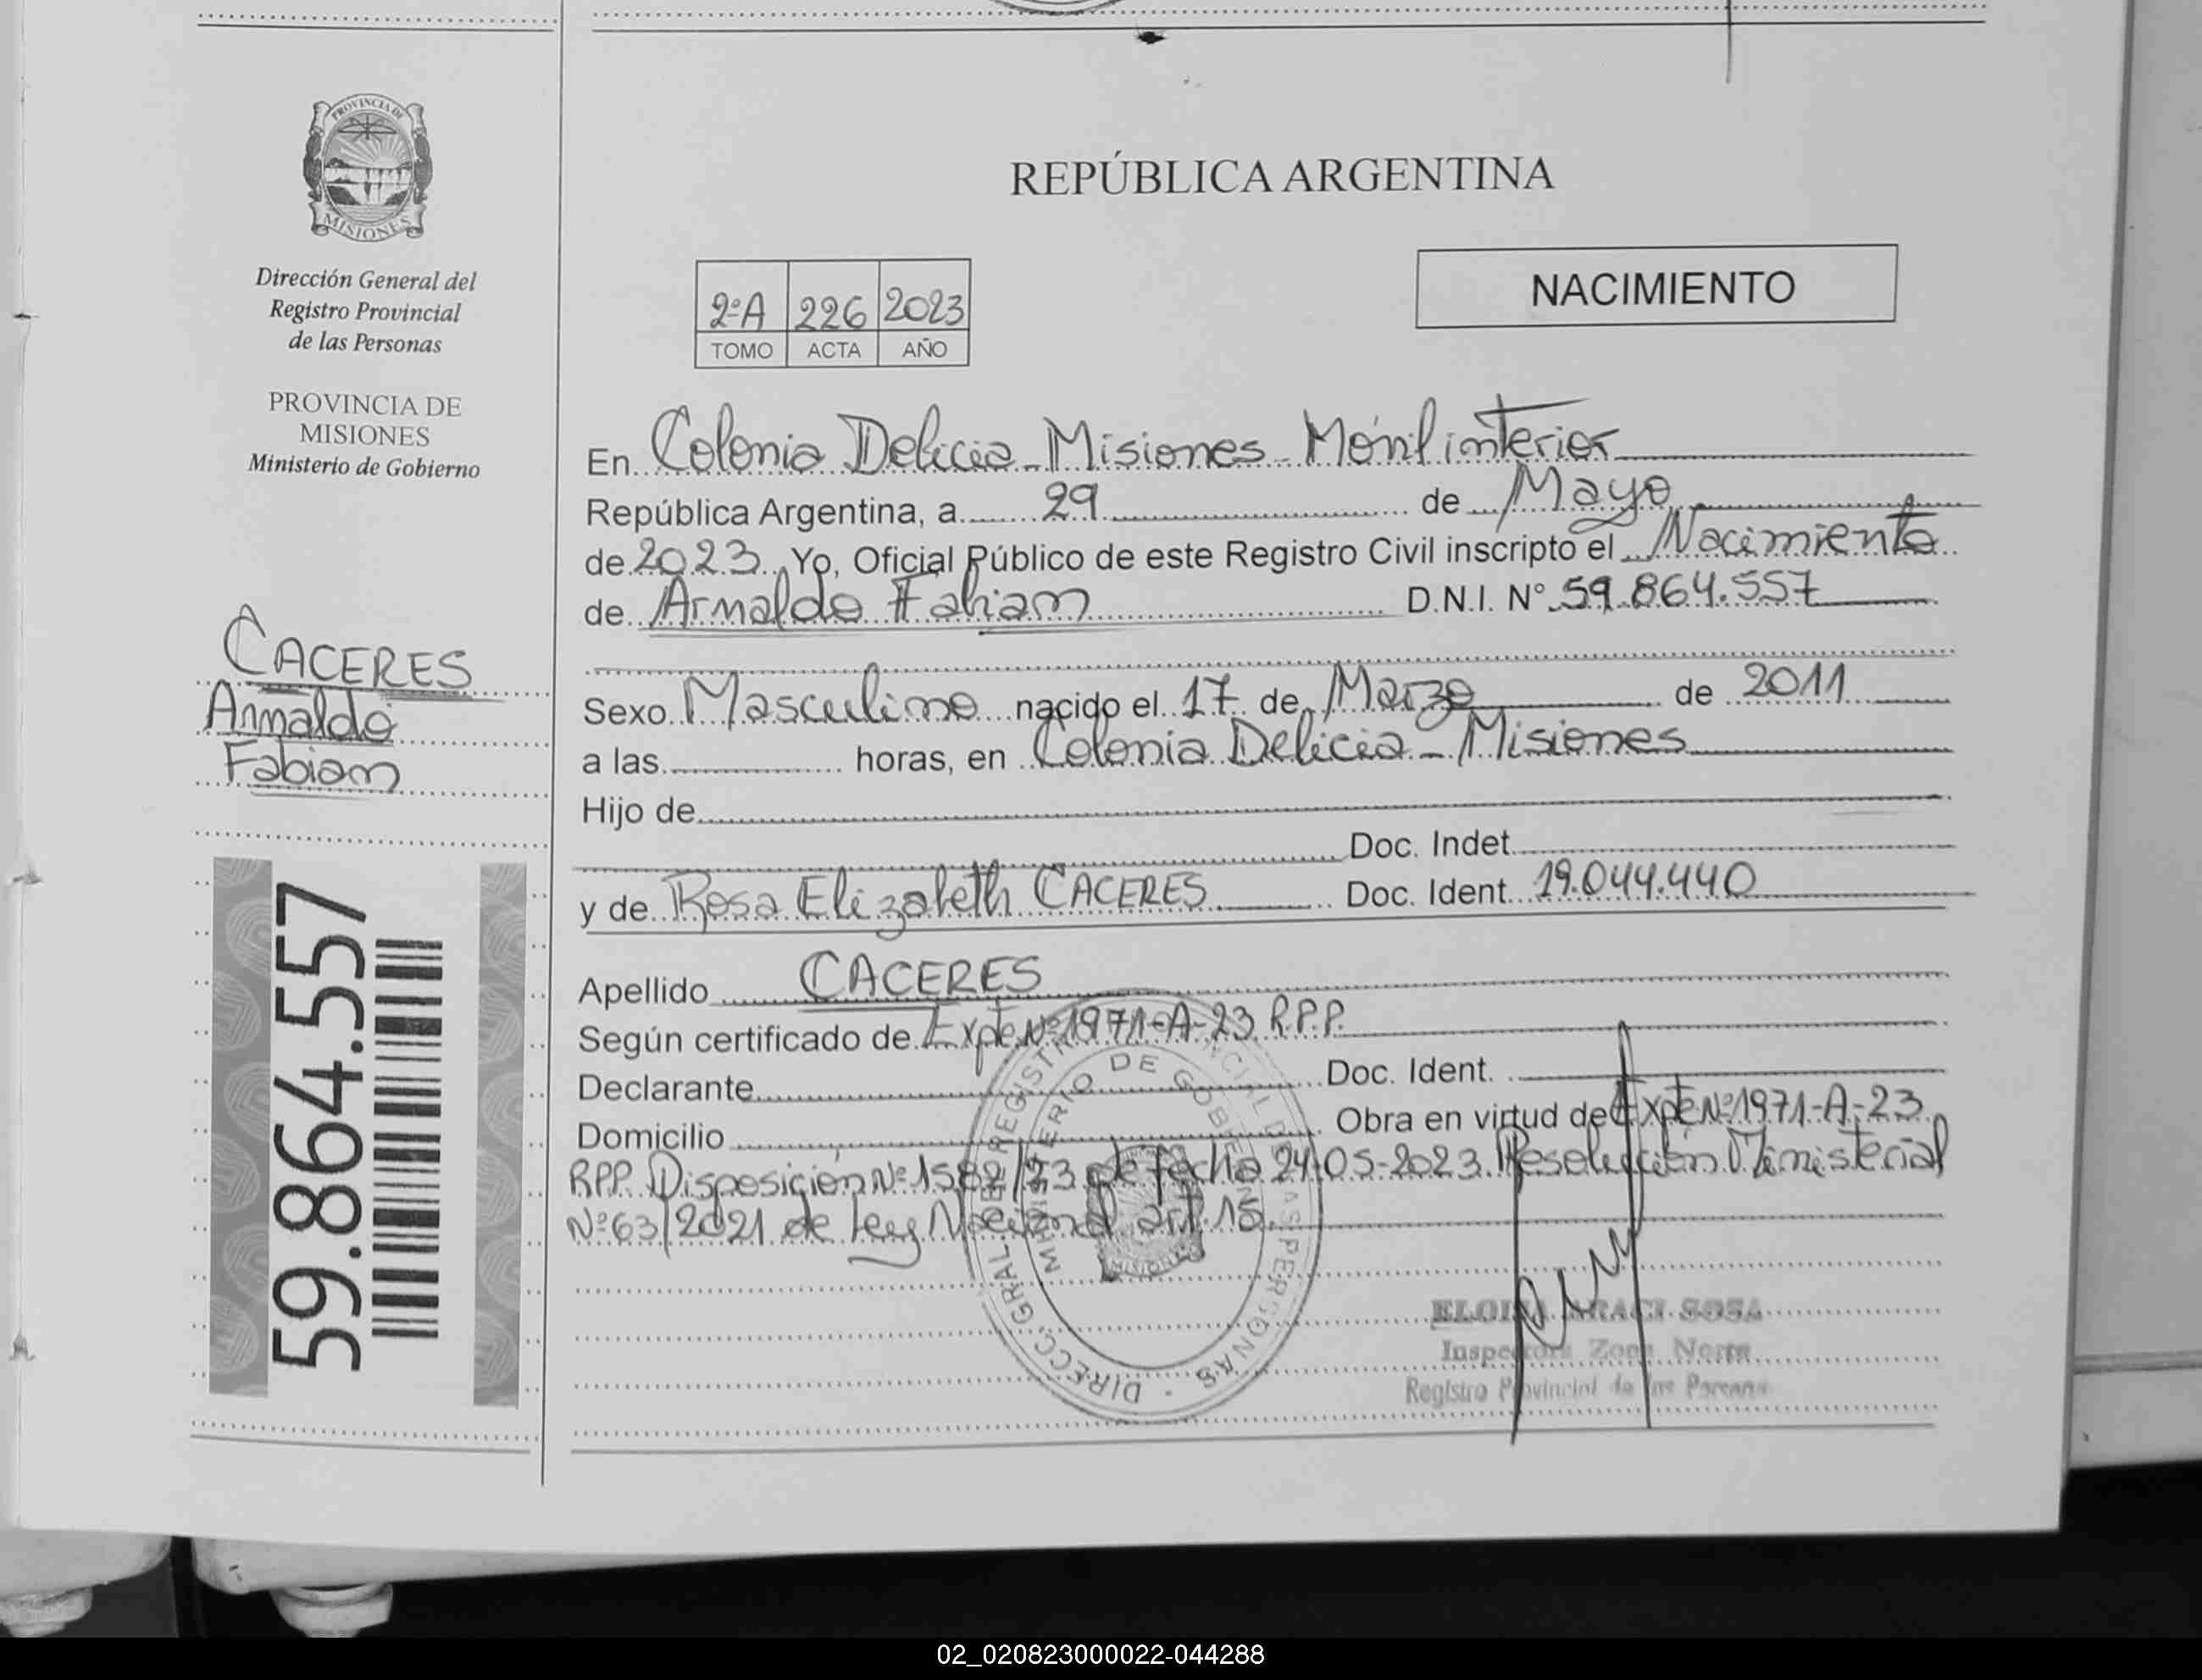 PROVINCIA DE
MISIONES
Dirección General del
Registro Provincial
de las Personas
PROVINCIA DE
MISIONES
Ministerio de Gobierno
CACERES
Arnaldo
Fabian
59.864.557
REPÚBLICA ARGENTINA
2ºA 226 2023
TOMO ACTA AÑO
NACIMIENTO
En Colonia Delicia - Misiones - Móvil interior
República Argentina, a 29 de Mayo
de 2023 Yo, Oficial Público de este Registro Civil inscripto el Nacimiento
de Arnaldo Fabian D.N.I. Nº 59.864.557
Sexo Masculino nacido el 17 de Marzo de 2011
a las horas, en Colonia Delicia - Misiones
Hijo de
Doc. Indet.
y de Rosa Elizabeth CACERES Doc. Ident. 19.044.440
Apellido CACERES
Según certificado de Expte Nº 1971-A-23 R.P.P.
Declarante Doc. Ident.
Domicilio Obra en virtud de Expte Nº 1971-A-23
RPP. Disposición Nº 1582/23 de fecha 24-05-2023. Resolución Ministerial
Nº 63/2021 de Ley Nacional art. 15.
DIRECC. GRAL. DE REGISTRO PROVINCIAL DE LAS PERSONAS
MINISTERIO DE GOBIERNO
MISIONES
ELOISA ARACI SOSA
Inspectora Zona Norte
Registro Provincial de las Personas
02_020823000022-044288